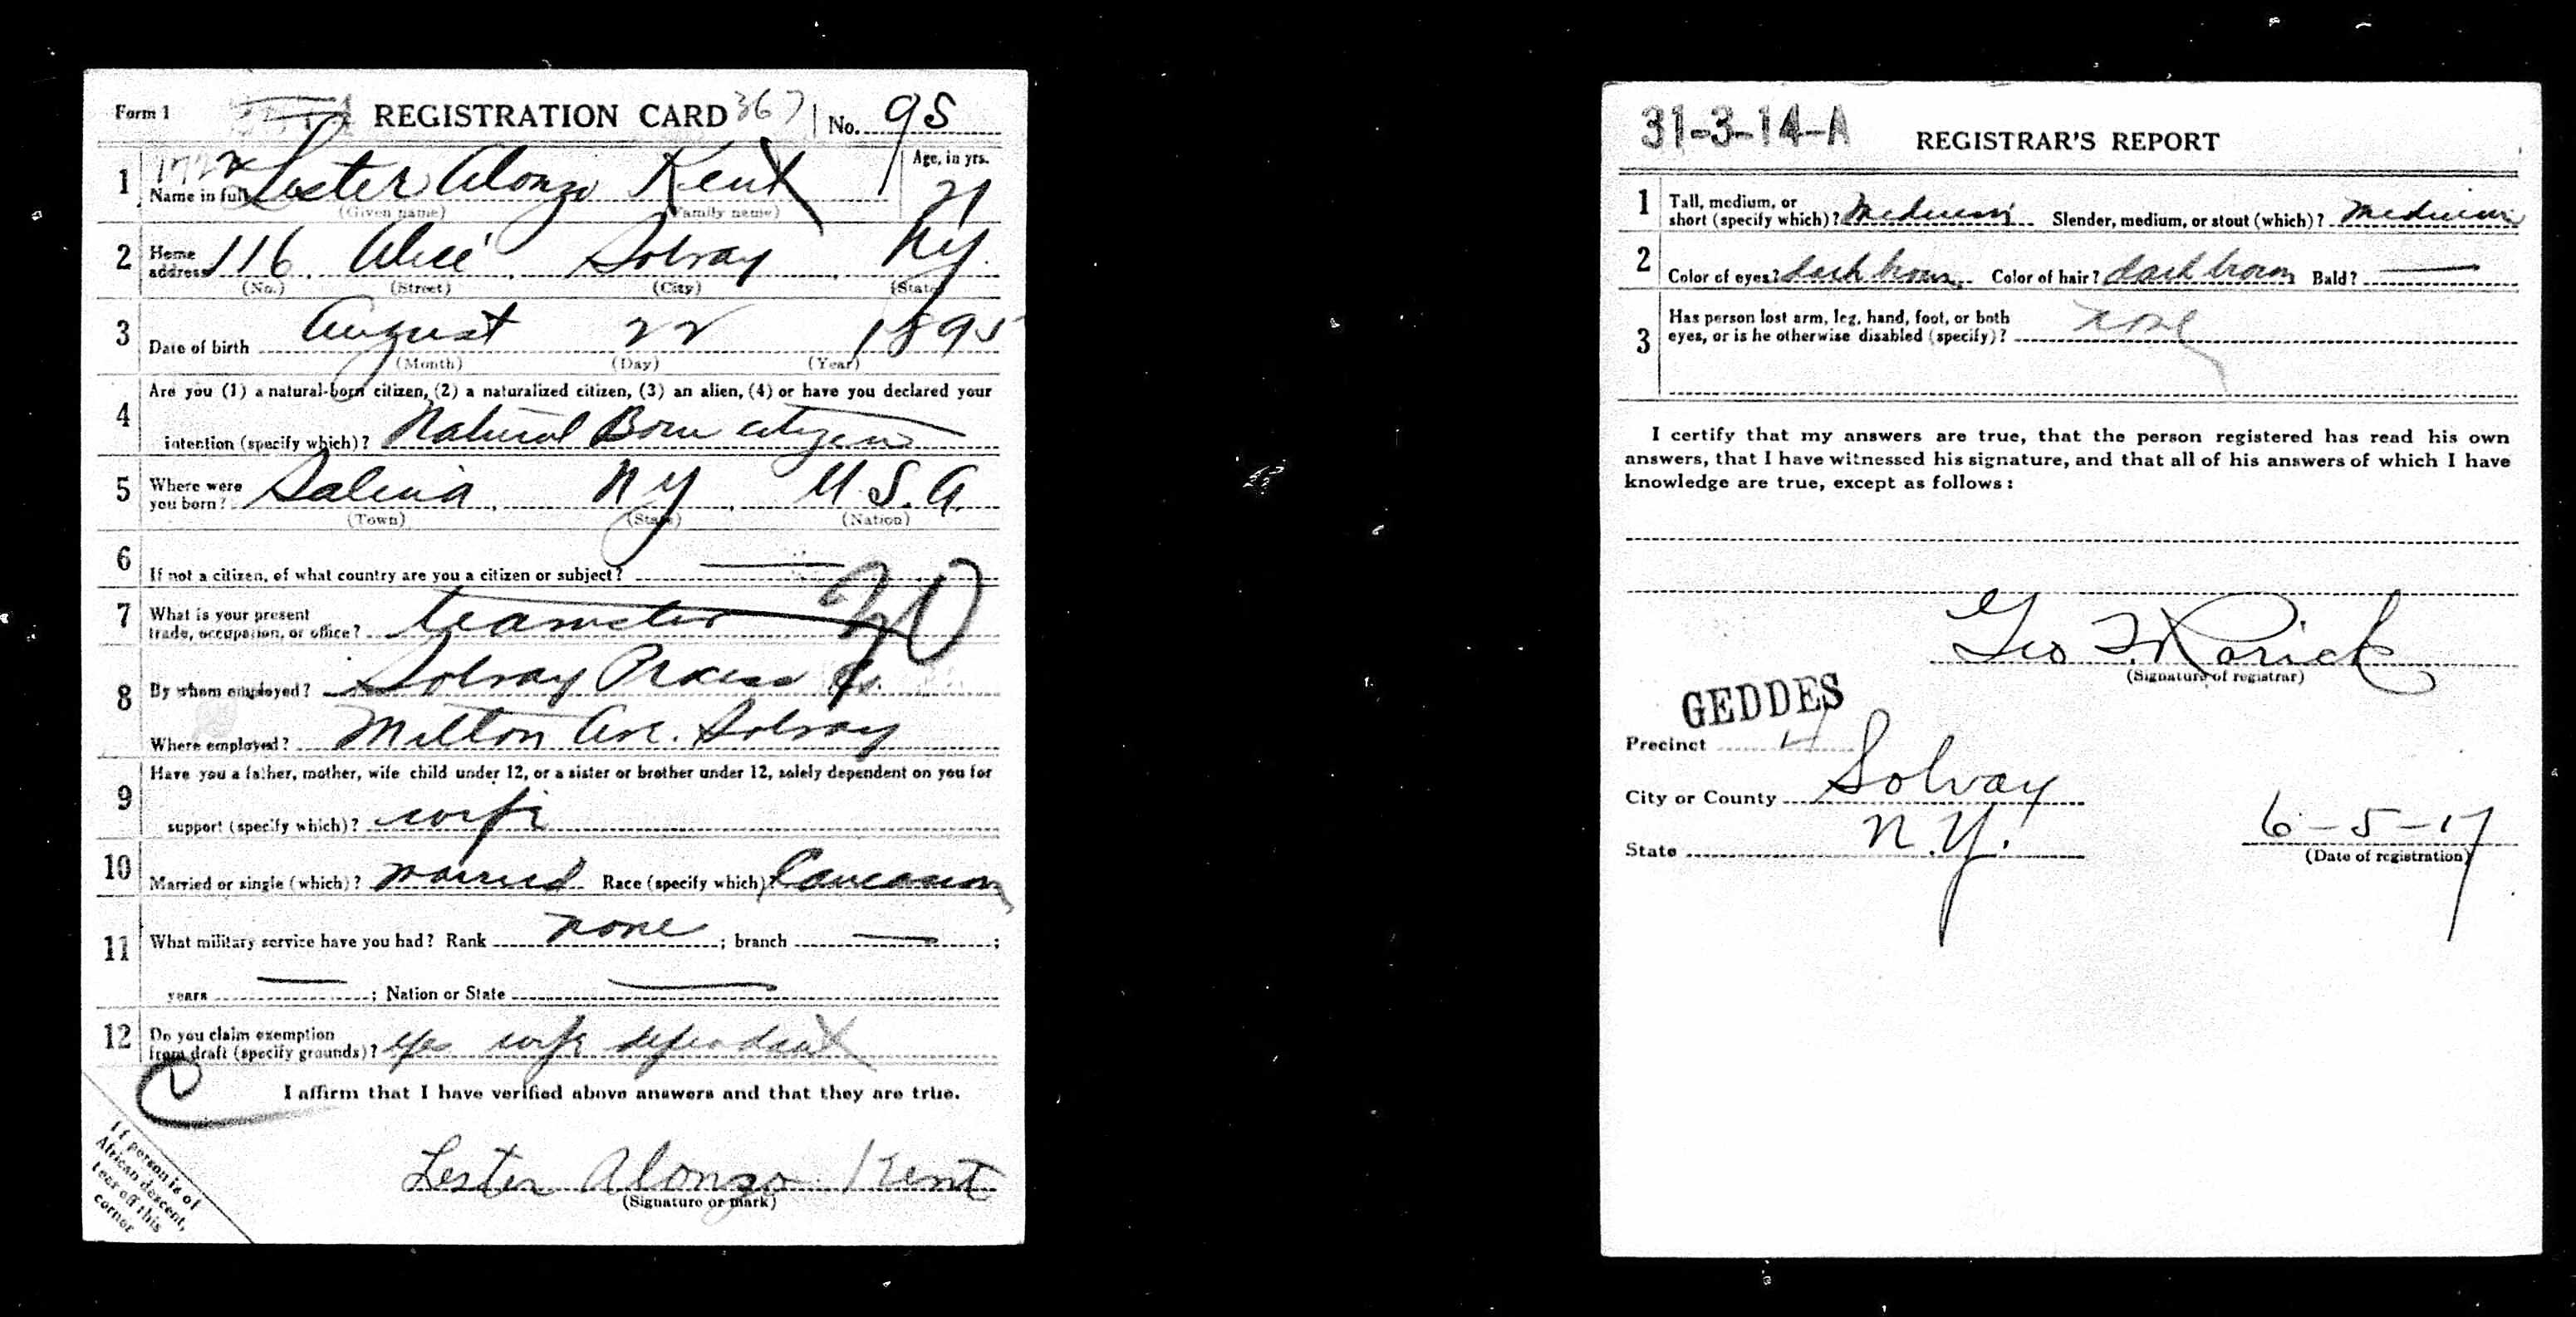 Form 1 REGISTRATION CARD 367 No. 95
1 Name in full Lester Alonzo Kent Age, in yrs. 21
(Given name) (Family name)
2 Home address 116 Alice Solvay N.Y.
(No.) (Street) (City) (State)
3 Date of birth August 22 1895
(Month) (Day) (Year)
4 Are you (1) a natural-born citizen, (2) a naturalized citizen, (3) an alien, (4) or have you declared your
intention (specify which)? Natural Born citizen
5 Where were you born? Salina, NY, U.S.A.
(Town) (State) (Nation)
6 If not a citizen, of what country are you a citizen or subject? —
7 What is your present
trade, occupation, or office? teamster 20
8 By whom employed? Solvay Process Co.
Where employed? Milton Ave. Solvay
9 Have you a father, mother, wife child under 12, or a sister or brother under 12, solely dependent on you for
support (specify which)? wife
10 Married or single (which)? married Race (specify which)? Caucasion
11 What military service have you had? Rank none ; branch — ;
years — ; Nation or State —
12 Do you claim exemption
from draft (specify grounds)? yes wife dependent
I affirm that I have verified above answers and that they are true.
Lester Alonzo Kent
(Signature or mark)
If person is of
African descent,
tear off this
corner
31-3-14-A REGISTRAR'S REPORT
1 Tall, medium, or
short (specify which)? Medium Slender, medium, or stout (which)? Medium
2 Color of eyes? dark brown Color of hair? dark brown Bald? —
3 Has person lost arm, leg, hand, foot, or both
eyes, or is he otherwise disabled (specify)? none
I certify that my answers are true, that the person registered has read his own
answers, that I have witnessed his signature, and that all of his answers of which I have
knowledge are true, except as follows:
Geo
(Signature of registrar)
GEDDES
Precinct 4
City or County Solvay
State N.Y. 6-5-17
(Date of registration)